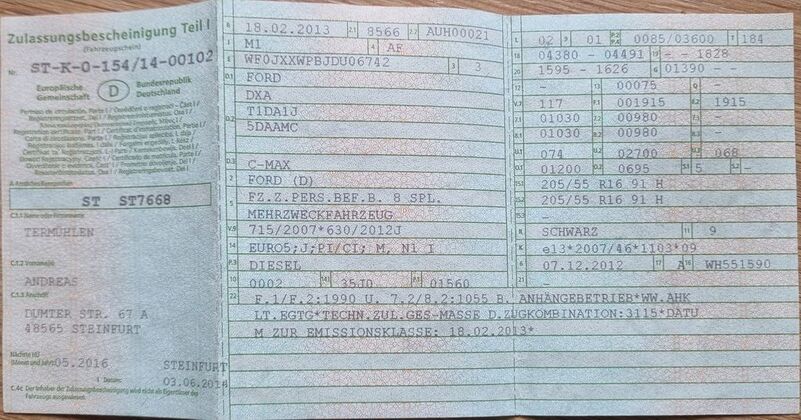 Zulassungsbescheinigung Teil I
(Fahrzeugschein)
Nr. ST-K-0-154/14-00102
Europäische Gemeinschaft D Bundesrepublik Deutschland
A Amtliches Kennzeichen
ST ST7668
C.1.1 Name oder Firmenname
TERMÜHLEN
C.1.2 Vorname(n)
ANDREAS
C.1.3 Anschrift
DUMTER STR. 67 A
48565 STEINFURT
Nächste HU
(Monat und Jahr) 05.2016
STEINFURT
I Datum: 03.06.2014
C.4c Der Inhaber der Zulassungsbescheinigung wird nicht als Eigentümer des
Fahrzeugs ausgewiesen.
B 18.02.2013 2.1 8566 2.2 AUH00021
J M1 4 AF
E WF0JXXWPBJDU06742 3 3
D.1 FORD
DXA
D.2 T1DA1J
5DAAMC
D.3 C-MAX
2 FORD (D)
5 FZ.Z.PERS.BEF.B. 8 SPL.
MEHRZWECKFAHRZEUG
V.9 715/2007*630/2012J
14 EURO5;J;PI/CI; M, N1 I
P.3 DIESEL
10 0002 14.1 35J0 P.1 01560
22 F.1/F.2:1990 U. 7.2/8.2:1055 B. ANHÄNGEBETRIEB*WW.AHK
LT.EGTG*TECHN.ZUL.GES-MASSE D.ZUGKOMBINATION:3115*DATU
M ZUR EMISSIONSKLASSE: 18.02.2013*
L 02 9 01 P.2 P.4 0085/03600 T 184
18 04380 - 04491 19 - - 1828
20 1595 - 1626 G 01390 - -
12 - 13 00075 Q -
V.7 117 F.1 001915 F.2 1915
7.1 01030 7.2 00980 7.3 -
8.1 01030 8.2 00980 8.3 -
U.1 074 U.2 02700 U.3 068
O.1 01200 O.2 0695 S.1 5 S.2 -
15.1 205/55 R16 91 H
15.2 205/55 R16 91 H
15.3 -
R SCHWARZ 11 9
K e13*2007/46*1103*09
6 07.12.2012 17 A 16 WH551590
21 -